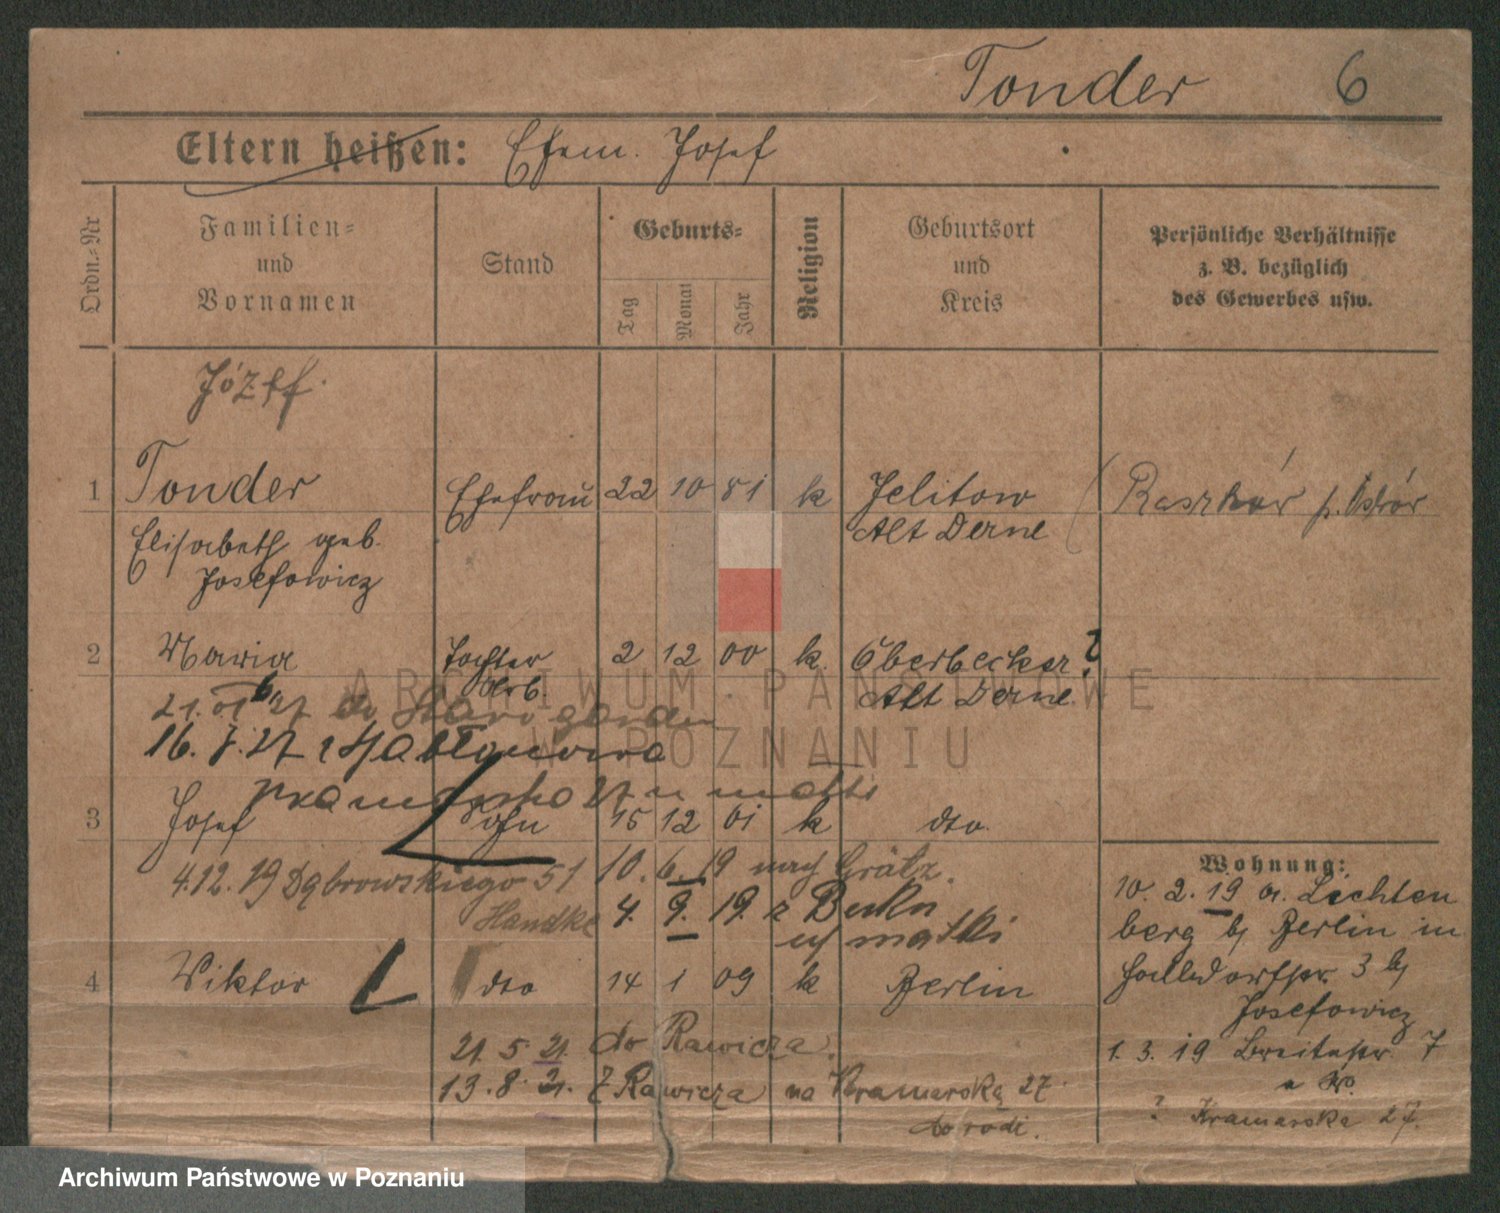 Tonder 6
Eltern heißen: Ehem. Josef
Ordn.-Nr
Familien-
und
Vornamen
Stand
Geburts-
Tag
Monat
Jahr
Religion
Geburtsort
und
Kreis
Persönliche Verhältnisse
z. B. bezüglich
des Gewerbes usw.
Józef
1 Tonder Ehefrau 22 10 81 k Jelitow
Elisabeth geb. Alt Derne
Josefowicz
2 Maria Tochter 2 12 00 k. Oberbecker
Arb. Alt Derne
21. 27 do Starogardu
16. 7. 27 z
Kramarska 27 u matki
3 Josef Sohn 15 12 01 k dto.
4.12.19 Dąbrowskiego 51 10. 6. 19 nach Grätz.
Handke 4. 9. 19. z
matki
4 Viktor dto 14 1 09 k Berlin
21. 5. 21. do Rawicza.
13. 8. 21. z Rawicza na Kramarską 27
do rodz.
Wohnung:
10. 2. 19 a. Lichten
berg b/ Berlin in
3 b/
Josefowicz
1. 3. 19 Breitestr. 7
Kramarska 27.
ARCHIWUM PAŃSTWOWE
W POZNANIU
Archiwum Państwowe w Poznaniu